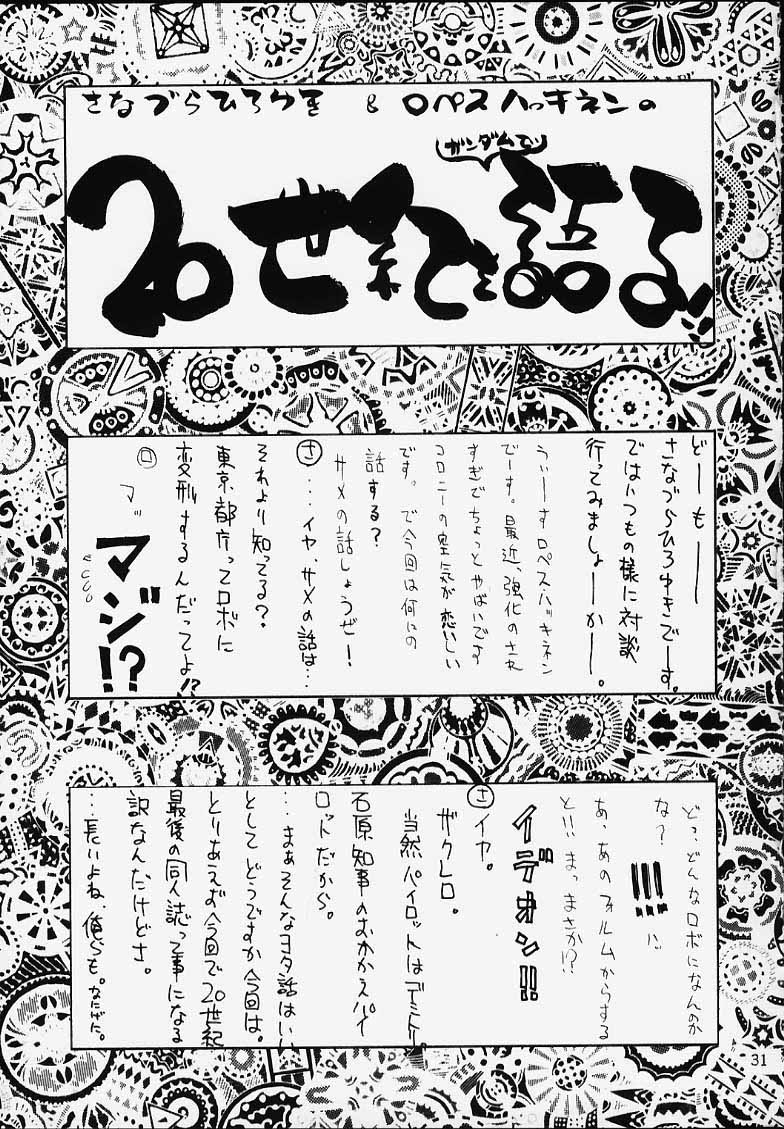 さなづらひろゆき & ロペスハッキネンの
ガンダムで
20世紀を語る!!
どーもーー
さなづらひろゆきでーす。
ではいつもの様に対談
行ってみましょーかー。
うぃーーすロペス・ハッキネン
でーす。最近、強化のされ
すぎでちょっとやばいです
コロニーの空気が恋しい
です。で今回は何にの
話する?
サメの話しょうぜー!
さ…イヤ、サメの話は…
それより知ってる?
東京都庁ってロボに
変形するんだってよ!?
ロ マッ
マジ!?
どっ、どんなロボになんのか
な?
!!! ハッ
あ、あのフォルムからする
と!!まっまさか!?
イデオン!!
さ イヤ。
ザクレロ。
当然パイロットはデミトリー。
石原知事のおかかえパイ
ロットだから。
…まぁそんなヨタ話はいい
としてどうですか今回は。
とりあえず今回で20世紀
最後の同人誌って事になる
訳なんだけどさ。
…長いよね、俺らも。なにげに。
31